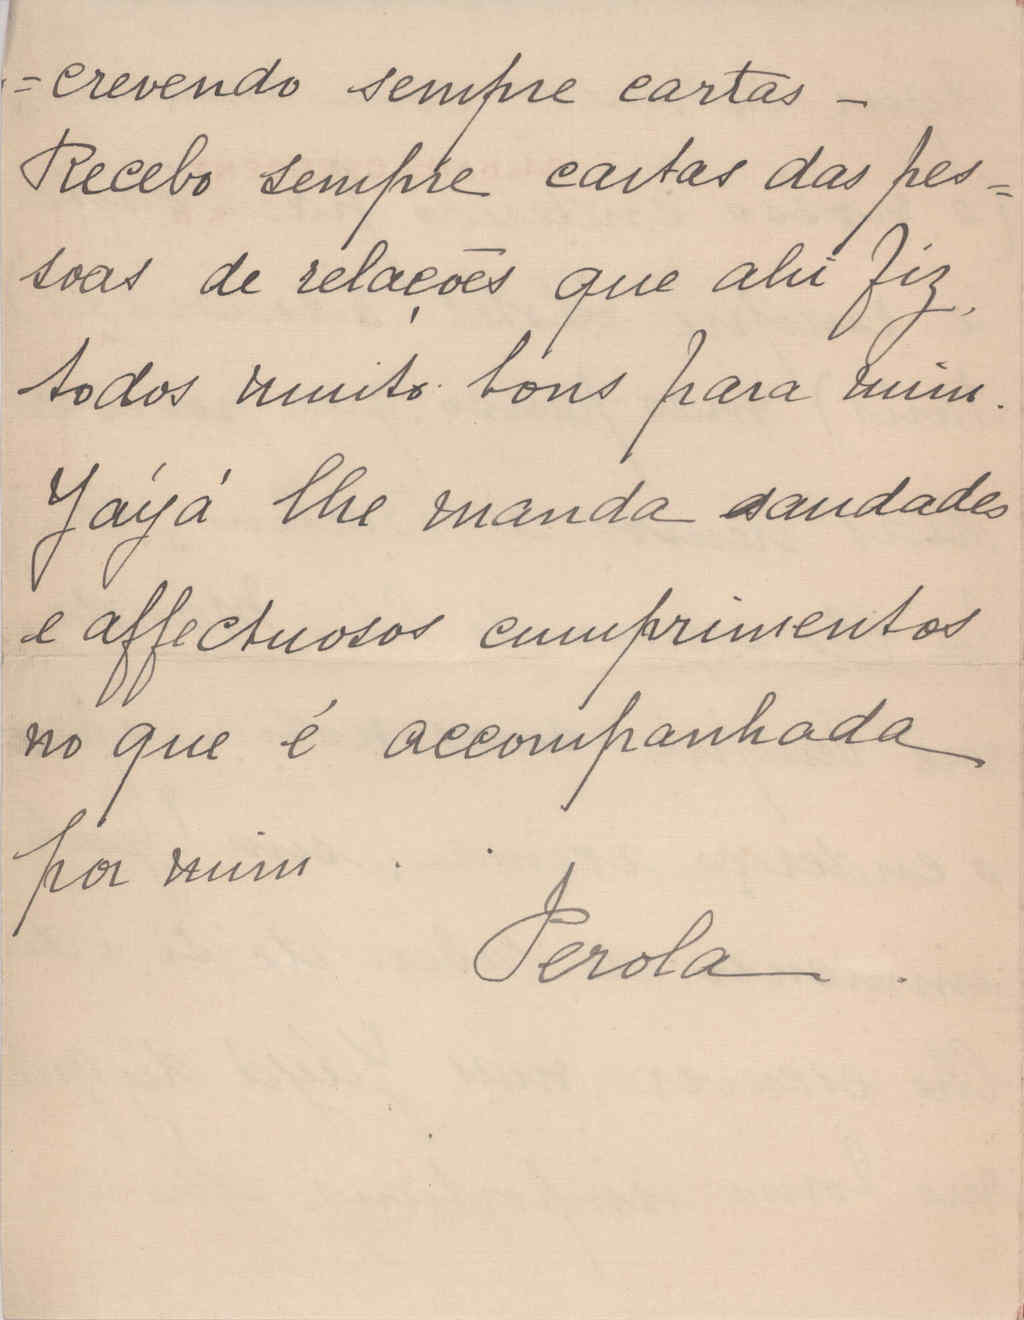 =crevendo sempre cartas –
Recebo sempre cartas das pes=
soas de relações que ahi fiz,
todos muito bons para mim.
Yáyá lhe manda saudades
e affectuosos cumprimentos
no que é accompanhada
por mim .
Perola .